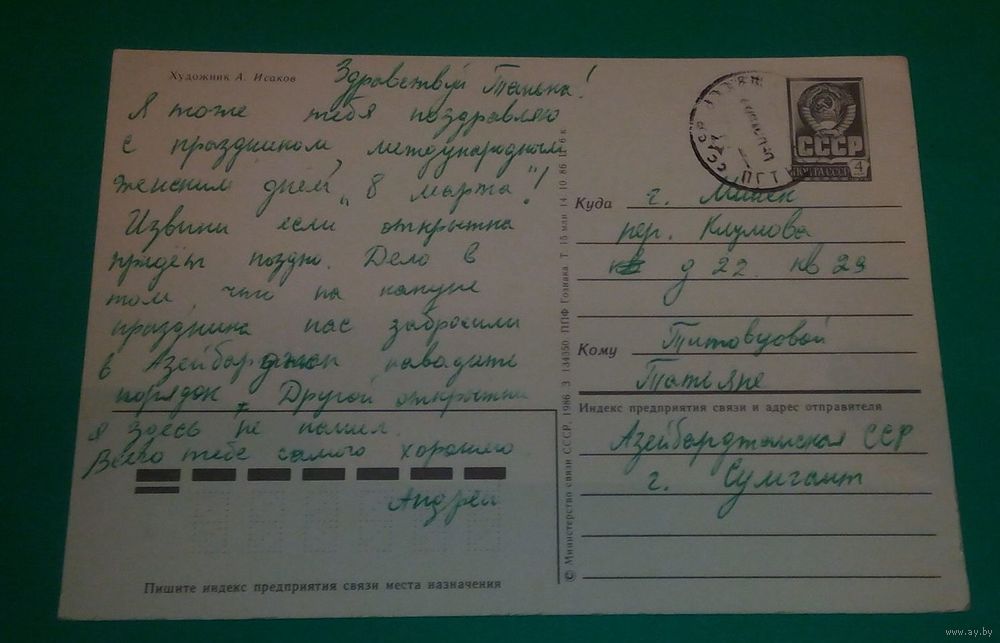 Художник А. Исаков
Здравствуй Танька!
Я тоже тебя поздравляю
с праздником, международным
женским днём „8 марта"!
Извини если открытка
придёт поздно. Дело в
том, что на кануне
праздника нас забросили
в Азейбарджан наводить
порядок. Другой открытки
я здесь не нашёл.
Всего тебе самого хорошего
Андрей
Пишите индекс предприятия связи места назначения
© Министерство связи СССР, 1986 З 134350 ППФ Гознака Т 15 млн 14.10.86 Ц 6 к
СССР
ПОЧТА СССР 4
Куда г. Минск
пер. Клумова
д 22 кв 29
Кому
Татьяне
Индекс предприятия связи и адрес отправителя
Азейбарджанская ССР
г. Сумгаит
www.ay.by